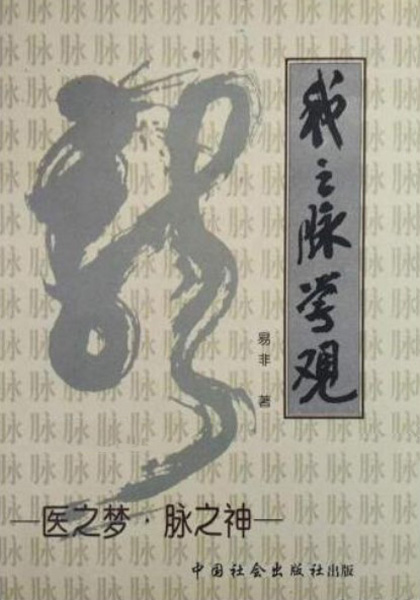 我之脉学观
易非 著
医之梦·脉之神
中国社会出版社出版